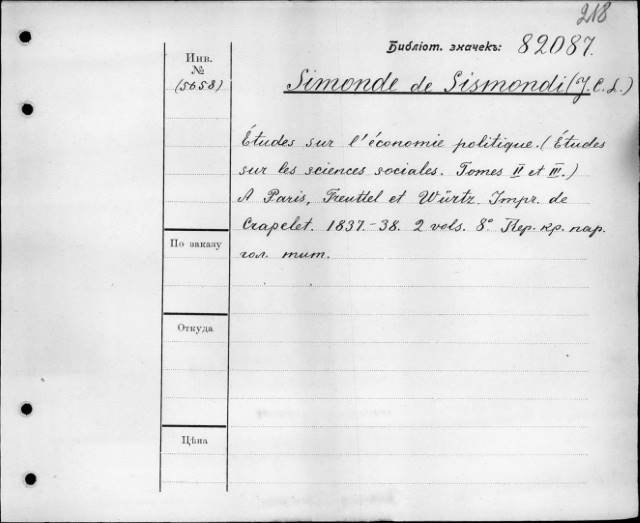 218
Библіот. значекъ: 82087.
Инв.
№
(5658)
Simonde de Sismondi (J. C. L.)
Études sur l'économie politique. (Études
sur les sciences sociales. Tomes II et III.)
A Paris, Treuttel et Würtz. Impr. de
Crapelet. 1837.-38. 2 vols. 8° Пер. кр. пар.
гол. тит.
По заказу
Откуда
Цѣна